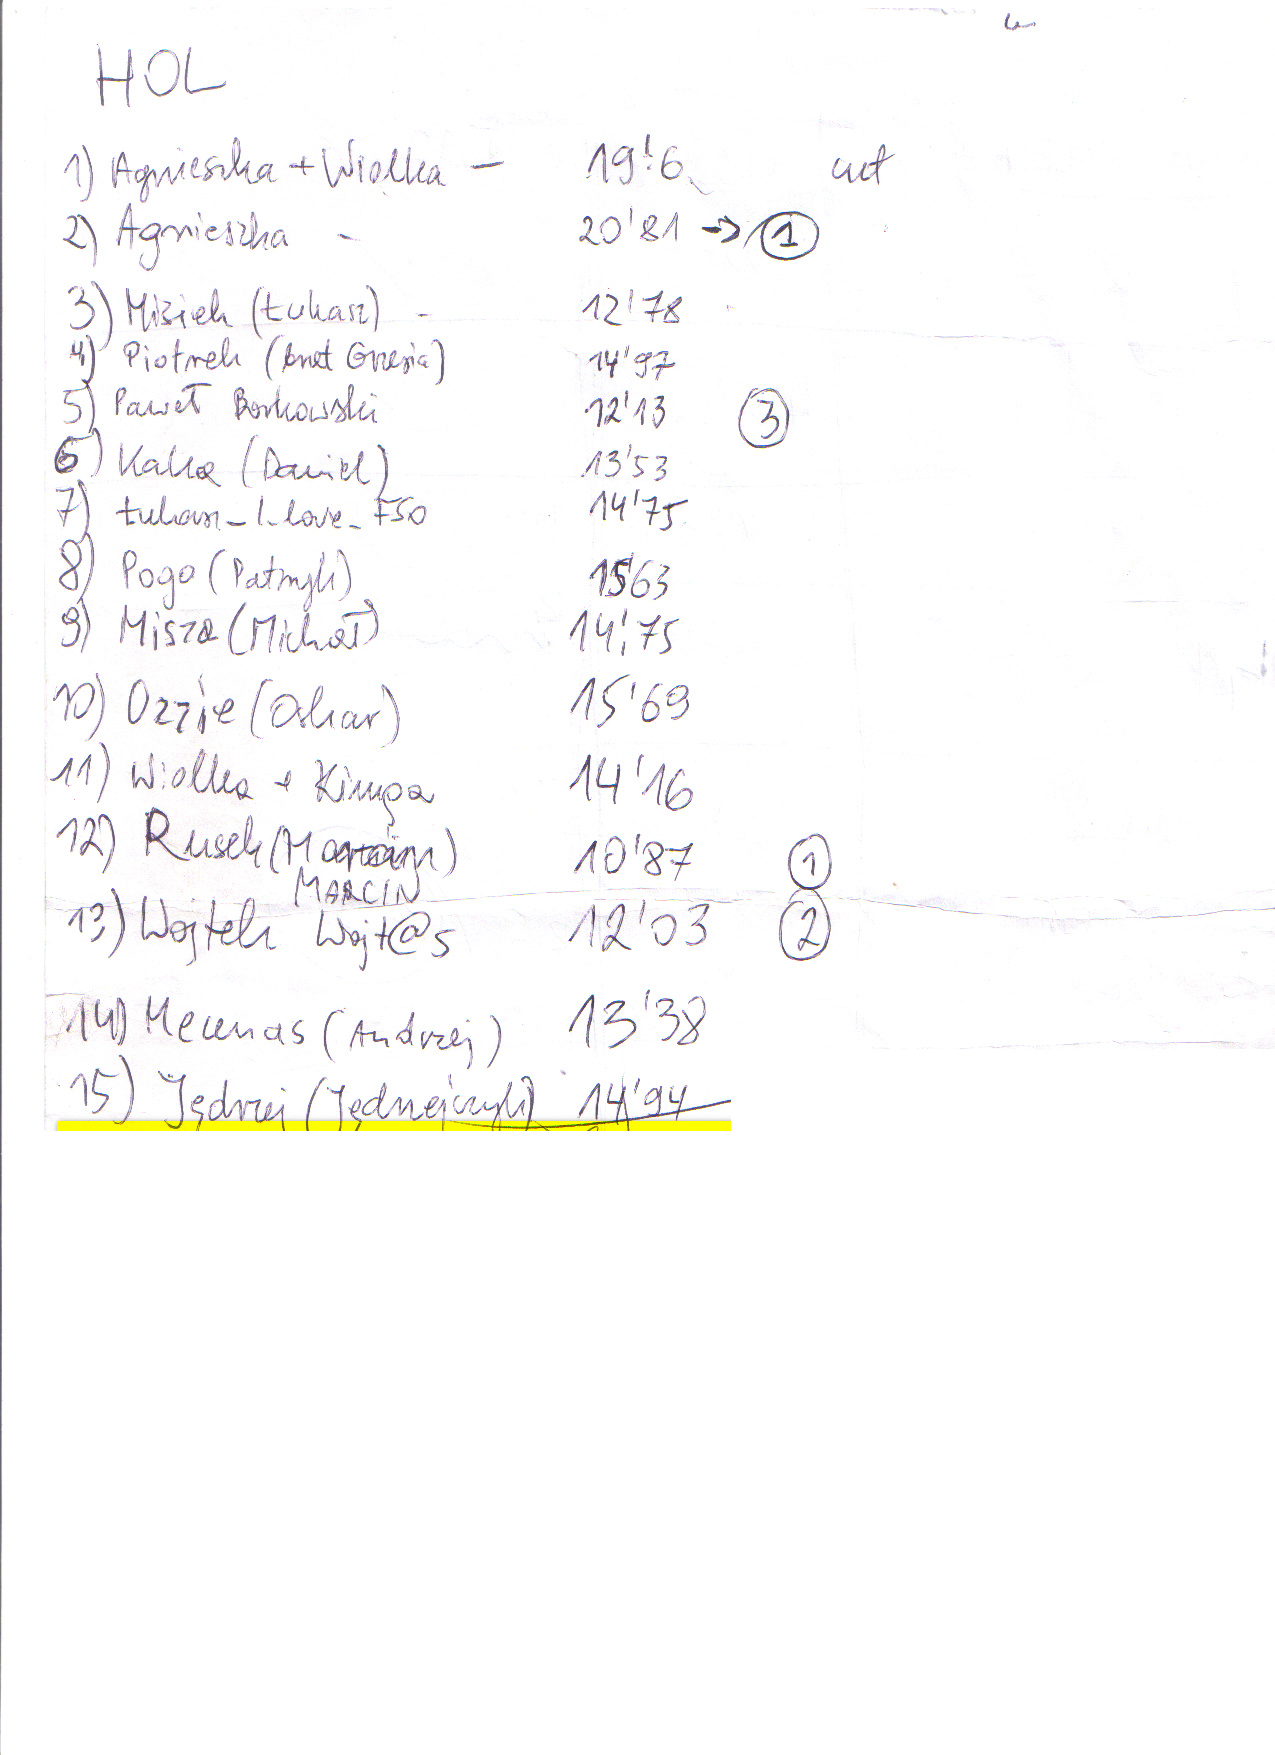 HOL
1) Agnieszka + Wiolka - 19'6
2) Agnieszka - 20'81 → 1
3) Misiek (Łukasz) - 12'78
4) Piotrek (brat Grzesia) 14'97
5) Paweł Borkowski 12'13 3
6) Kaka (Daniel) 13'53
7) Łukasz_I_love_FSO 14'75
8) Pogo (Patryk) 15'63
9) Misza (Michał) 14'75
10) Ozzie (Oskar) 15'69
11) Wiolka + Kinga 14'16
12) Rusek (Marcin) 10'87 1
MARCIN
13) Wojtek Wojt@s 12'03 2
14) Mecenas (Andrzej) 13'38
15) Jędrzej (Jędrzejczyk) 14'94